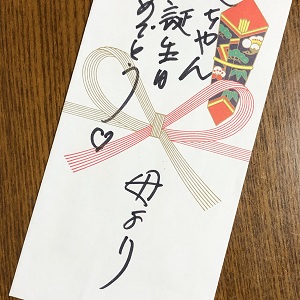 ちゃん
誕生日
おめでとう♡
母より